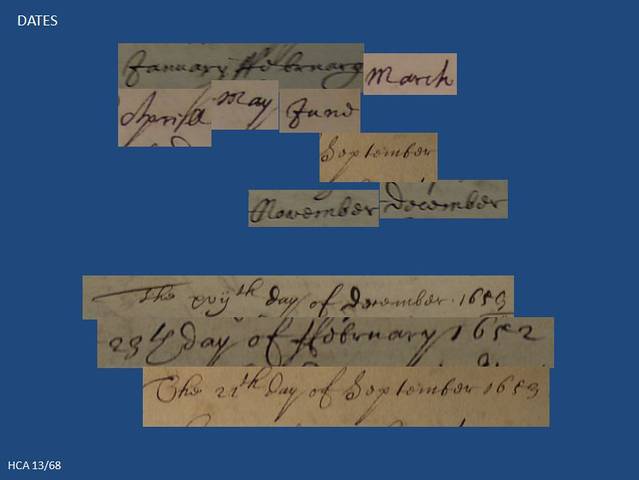 DATES
January ffebruary March
Aprill May June
September
November December
The xvijth day of December 1653
23th day of ffebruary 1652
The 22th day of September 1653
HCA 13/68